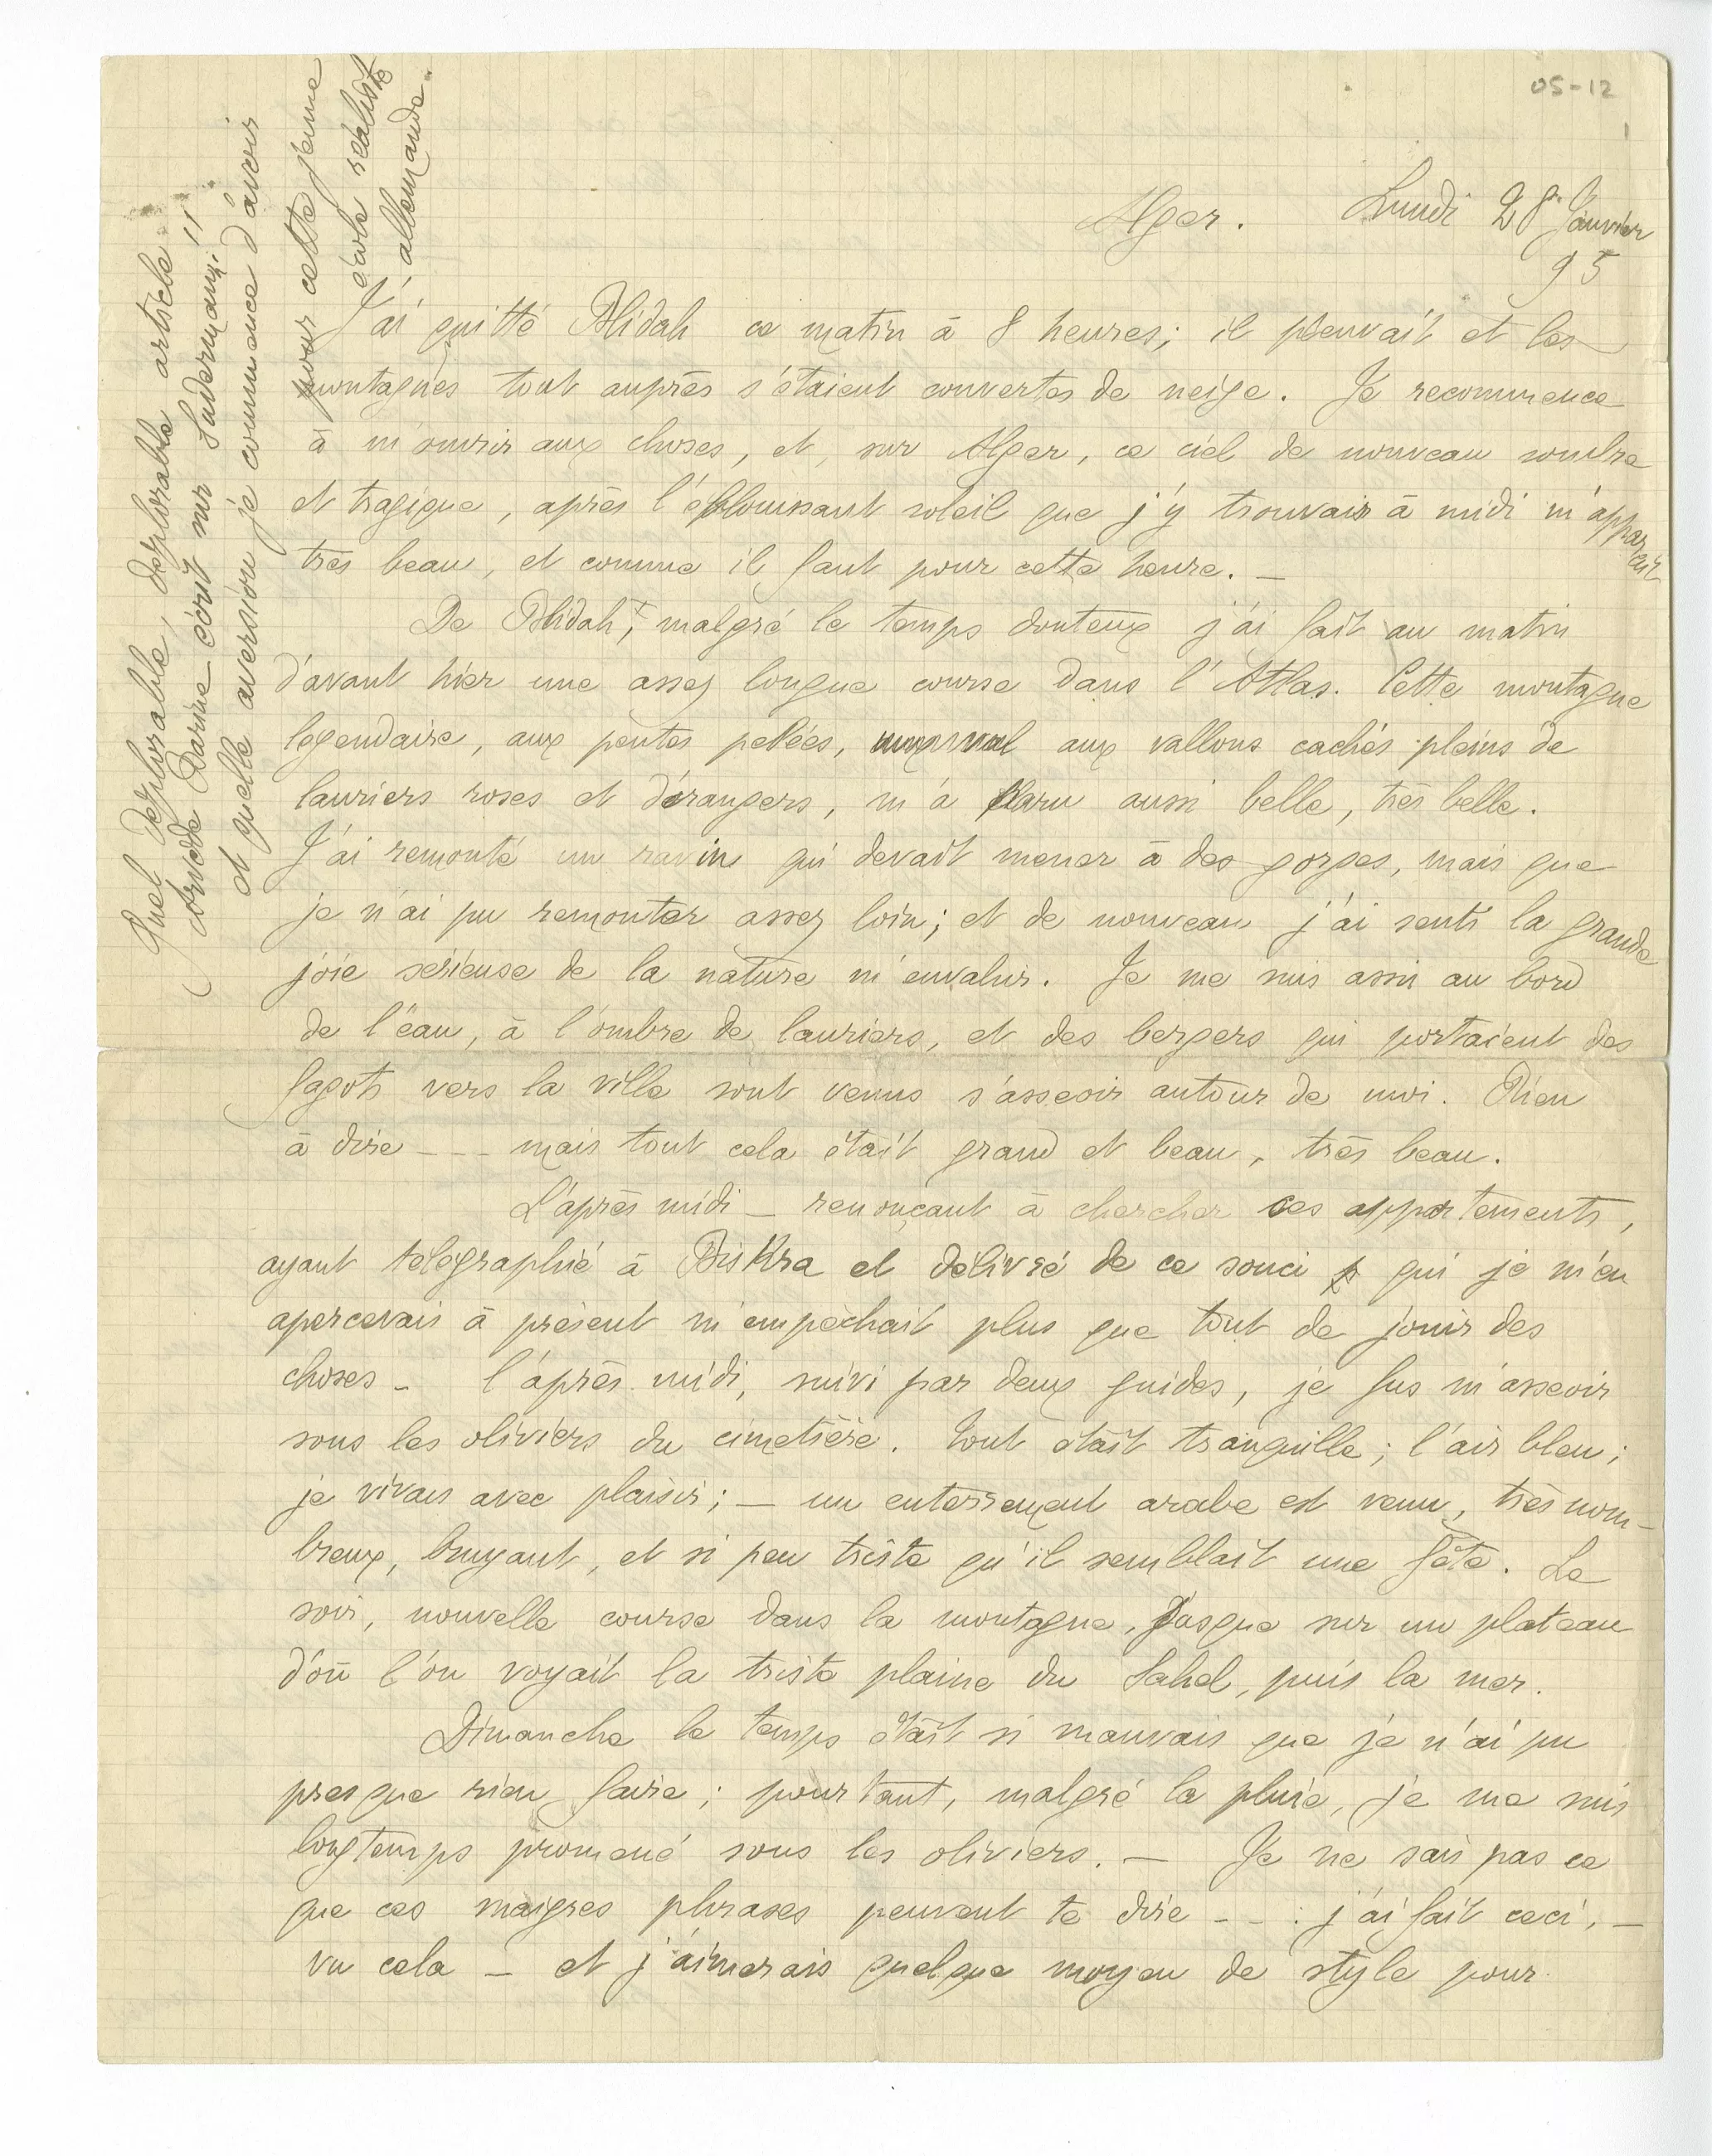 05-12
1
Alger. Lundi 28 Janvier
95
J'ai quitté Blidah ce matin à 8 heures; il pleuvait et les
montagnes tout auprès s'étaient couvertes de neige. Je recommence
à m'ouvrir aux choses, et, sur Alger, ce ciel de nouveau sombre
et tragique, après l'éblouissant soleil que j'y trouvais à midi m'apparait
très beau, et comme il faut pour cette heure. —
De Blidah, malgré le temps douteux j'ai fait au matin
d'avant hier une assez longue course dans l'Atlas. Cette montagne
légendaire, aux pentes pelées, aux vallons cachés pleins de
lauriers roses et d'orangers, m'a paru aussi belle, très belle.
J'ai remonté un ravin qui devait mener à des gorges, mais que
je n'ai pu remonter assez loin; et de nouveau j'ai senti la grande
joie sérieuse de la nature m'envahir. Je me suis assis au bord
de l'eau, à l'ombre de lauriers, et des bergers qui portaient des
fagots vers la ville sont venus s'asseoir autour de moi. Rien
à dire --- mais tout cela était grand et beau, très beau.
L'après midi — renonçant à chercher ces appartements,
ayant télégraphié à Biskra et délivré de ce souci qui je m'en
apercevais à présent m'empêchait plus que tout de jouir des
choses — l'après midi, suivi par deux guides, je fus m'asseoir
sous les oliviers du cimetière. Tout était tranquille; l'air bleu;
je vivais avec plaisir; — un enterrement arabe est venu, très nom-
breux, bruyant, et si peu triste qu'il semblait une fête. Le
soir, nouvelle course dans la montagne, jusque sur un plateau
d'où l'on voyait la triste plaine du Sahel, puis la mer.
Dimanche le temps était si mauvais que je n'ai pu
presque rien faire; pourtant, malgré la pluie, je me suis
longtemps promené sous les oliviers. — Je ne sais pas ce
que ces maigres phrases peuvent te dire --- j'ai fait ceci, —
vu cela — et j'aimerais quelque moyen de style pour
Quel déplorable, déplorable article
Darine écrit sur Sudermann!!
et quelle aversion je commence d'avoir
pour cette jeune
école réaliste
allemande.